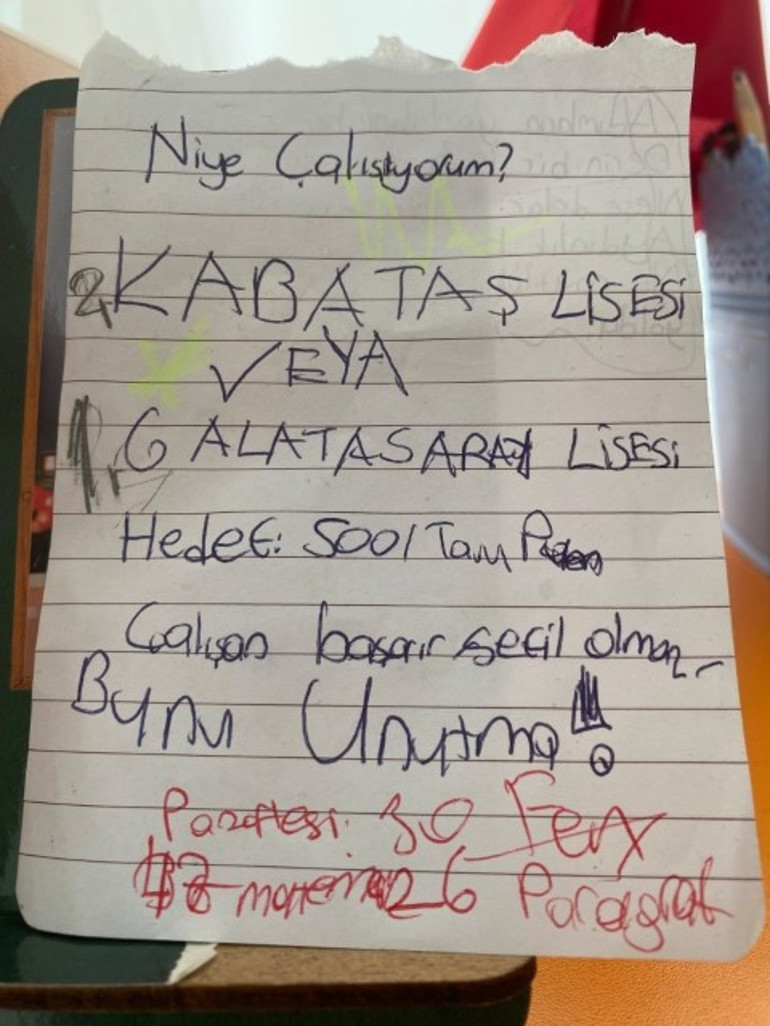 Niye Çalışıyorum?
2. KABATAŞ LİSESİ
VEYA
1. GALATASARAY LİSESİ
Hedef: 500/Tam
Çalışan başarır seçil olmaz
Bunu Unutma!!!
Pazartesi: 30 Fen
26 Paragraf